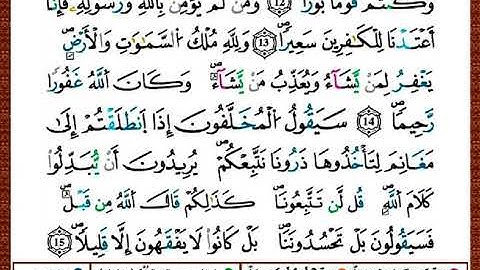 وَكُنتُمْ قَوْمًا بُورًا ۝١٢ وَمَن لَّمْ يُؤْمِنۢ بِٱللَّهِ وَرَسُولِهِۦ فَإِنَّآ
أَعْتَدْنَا لِلْكَٰفِرِينَ سَعِيرًا ۝١٣ وَلِلَّهِ مُلْكُ ٱلسَّمَٰوَٰتِ وَٱلْأَرْضِ
يَغْفِرُ لِمَن يَشَآءُ وَيُعَذِّبُ مَن يَشَآءُ وَكَانَ ٱللَّهُ غَفُورًا
رَّحِيمًا ۝١٤ سَيَقُولُ ٱلْمُخَلَّفُونَ إِذَا ٱنطَلَقْتُمْ إِلَىٰ
مَغَانِمَ لِتَأْخُذُوهَا ذَرُونَا نَتَّبِعْكُمْ يُرِيدُونَ أَن يُبَدِّلُوا۟
كَلَٰمَ ٱللَّهِ قُل لَّن تَتَّبِعُونَا كَذَٰلِكُمْ قَالَ ٱللَّهُ مِن قَبْلُ
فَسَيَقُولُونَ بَلْ تَحْسُدُونَنَا بَلْ كَانُوا۟ لَا يَفْقَهُونَ إِلَّا قَلِيلًا ۝١٥